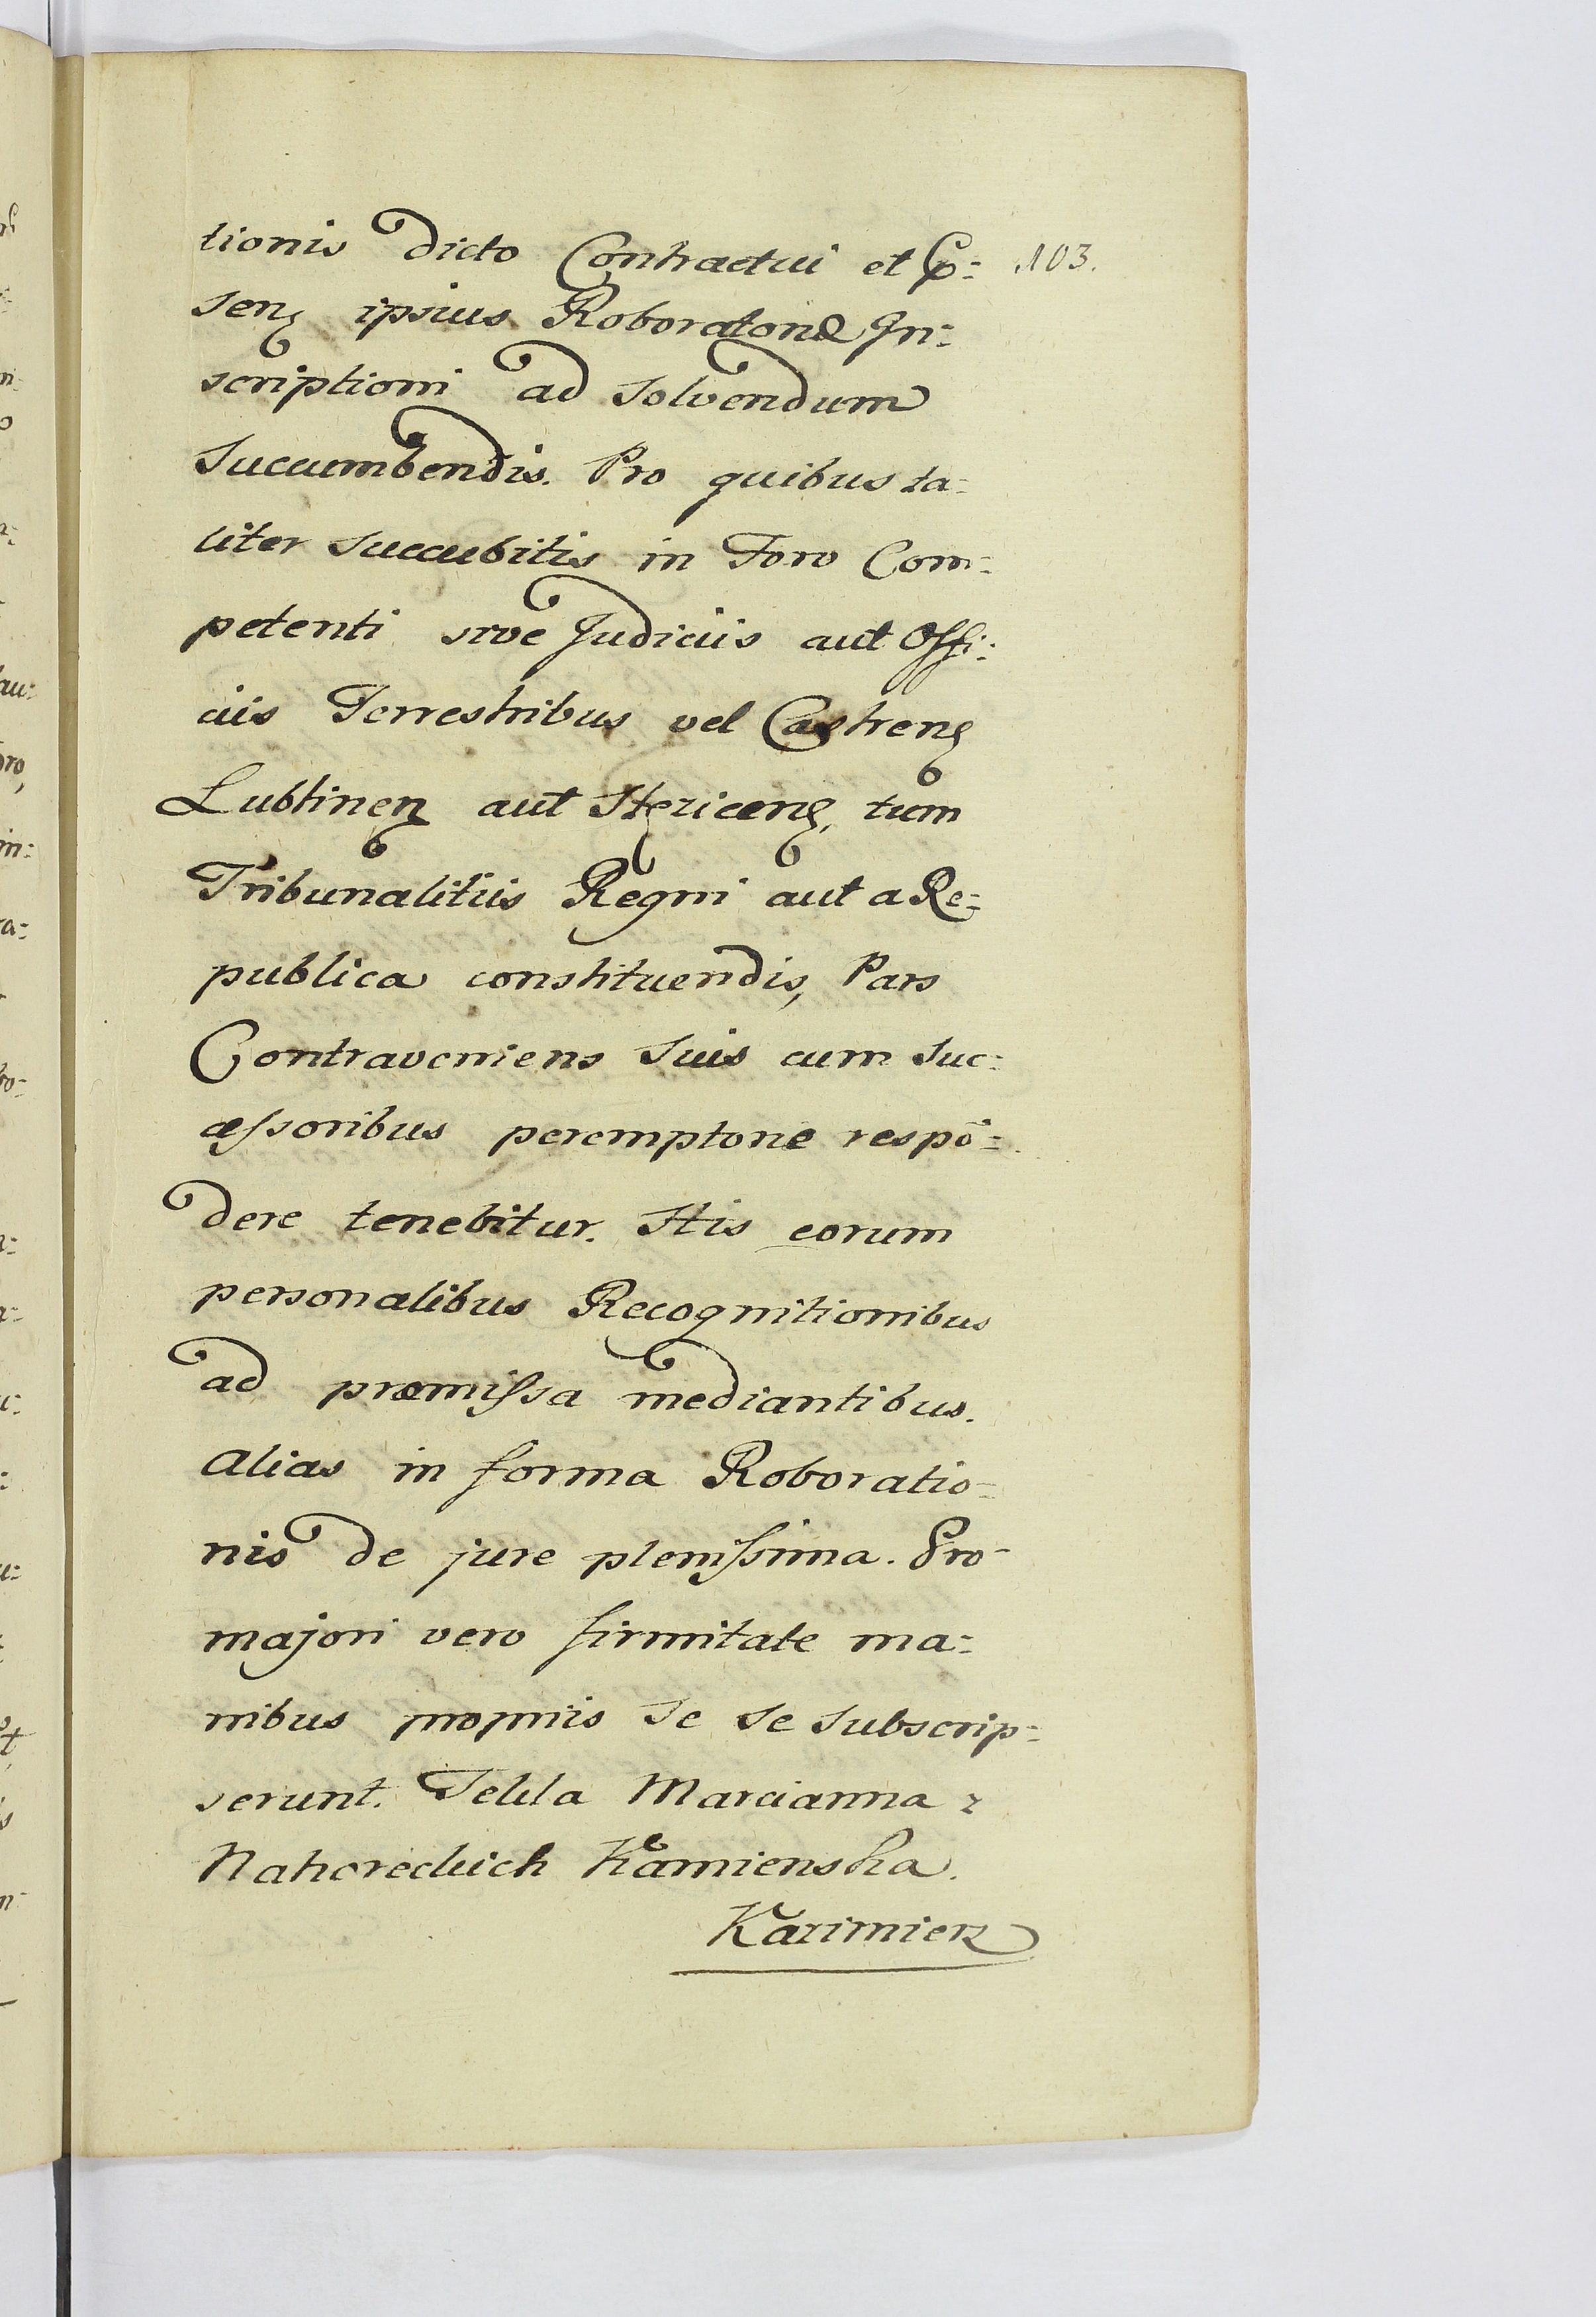 tionis dicto Contractui et Prae: 103.
senꝫ ipsius Roboratoriae In:
scriptioni ad solvendum
Succumbendis. Pro quibus ta:
liter Succubitis in Foro Com:
petenti sive Judiciis aut Offi:
ciis Terrestribus vel Castrenꝫ
Lublinenꝫ aut Stęzicenꝫ, tum
Tribunalitiis Regni aut a Re:
publica constituendis, Pars
Contraveniens Suis cum Suc:
cessoribus peremptorie respō:
dere tenebitur. His eorum
personalibus Recognitionibus
ad praemissa mediantibus.
alias in forma Roboratio:
nis de jure plenissima. Pro
majori vero firmitate ma:
nibus propriis Se Se Subscrip:
serunt. Tekla Marcianna z
Nahoreckich Kamienska.
Kazimierz